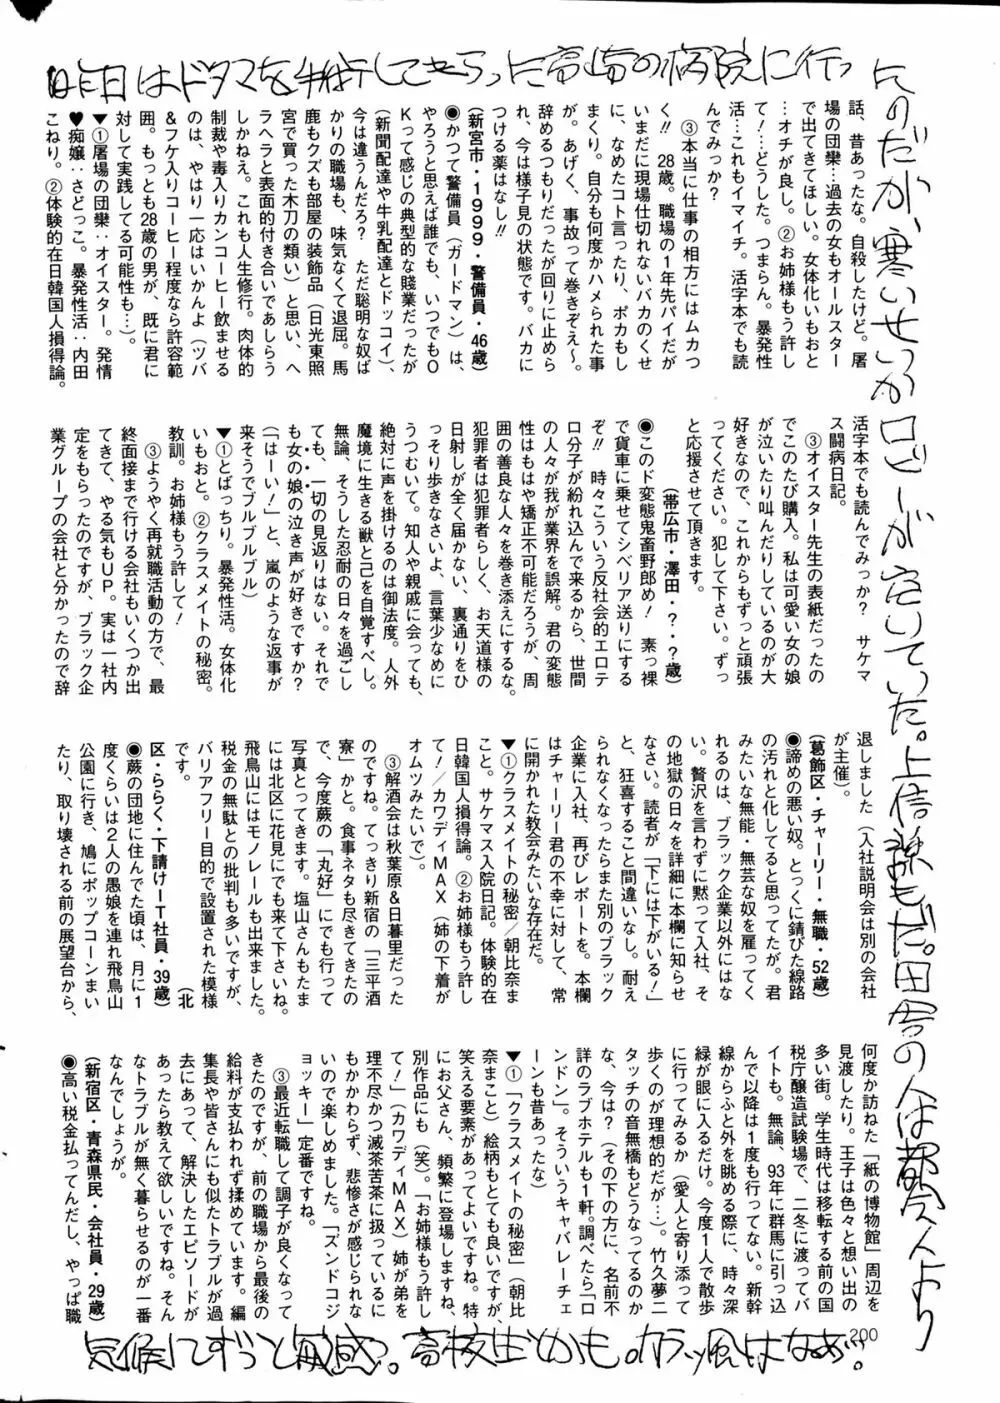 話、昔あったな。自殺したけど。屠
場の団欒…過去の女もオールスター
で出てきてほしい。女体化いもおと
…オチが良し。②お姉様もう許し
て！…どうした。つまらん。暴発性
活…これもイマイチ。活字本でも読
んでみっか？
③本当に仕事の相方にはムカつ
く!! 28歳。職場の1年先パイだが
いまだに現場仕切れないバカのくせ
に、なめたコト言ったり、ポカもし
まくり。自分も何度かハメられた事
が。あげく、事故って巻きぞえ〜。
辞めるつもりだったが回りに止めら
れ、今は様子見の状態です。バカに
つける薬はなし!!
（新宮市・1999・警備員・46歳）
◉かつて警備員（ガードマン）は、
やろうと思えば誰でも、いつでもO
Kって感じの典型的な賤業だったが
（新聞配達や牛乳配達とドッコイ）、
今は違うんだろ？ ただ聡明な奴ば
かりの職場も、味気なくて退屈。馬
鹿もクズも部屋の装飾品（日光東照
宮で買った木刀の類い）と思い、へ
ラヘラと表面的付き合いであしらう
しかねえ。これも人生修行。肉体的
制裁や毒入りカンコーヒー飲ませる
のは、やはり一応はいかんよ（ツバ
＆フケ入りコーヒー程度なら許容範
囲。もっとも28歳の男が、既に君に
対して実践してる可能性も…）。
▼①屠場の団欒：オイスター。発情
♥痴嬢：さどっこ。暴発性活：内田
こねり。②体験的在日韓国人損得論。
活字本でも読んでみっか？ サケマ
ス闘病日記。
③オイスター先生の表紙だったの
でこのたび購入。私は可愛い女の娘
が泣いたり叫んだりしているのが大
好きなので、これからもずっと頑張
ってください。犯して下さい。ずっ
と応援させて頂きます。
（帯広市・澤田・？・？歳）
◉このド変態鬼畜野郎め！ 素っ裸
で貨車に乗せてシベリア送りにする
ぞ!! 時々こういう反社会的エロテ
ロ分子が紛れ込んで来るから、世間
の人々が我が業界を誤解。君の変態
性はもはや矯正不可能だろうが、周
囲の善良な人々を巻き添えにするな。
犯罪者は犯罪者らしく、お天道様の
日射しが全く届かない、裏通りをひ
っそり歩きなさいよ、言葉少なめに
うつむいて。知人や親戚に会っても、
絶対に声を掛けるのは御法度。人外
魔境に生きる獣と己を自覚すべし。
無論、そうした忍耐の日々を過ごし
ても、一切の見返りはない。それで
も女の娘の泣き声が好きですか？
（「はーい！」と、嵐のような返事が
来そうでブルブルブル）
▼①とばっちり。暴発性活。女体化
いもおと。②クラスメイトの秘密。
教訓。お姉様もう許して！
③ようやく再就職活動の方で、最
終面接まで行ける会社もいくつか出
てきて、やる気もUP。実は一社内
定をもらったのですが、ブラック企
業グループの会社と分かったので辞
退しました（入社説明会は別の会社
が主催）。
（葛飾区・チャーリー・無職・52歳）
◉諦めの悪い奴。とっくに錆びた線路
の汚れと化してると思ってたが。君
みたいな無能・無芸な奴を雇ってく
れるのは、ブラック企業以外にはな
い。贅沢を言わずに黙って入社、そ
の地獄の日々を詳細に本欄に知らせ
なさい。読者が「下には下がいる！」
と、狂喜すること間違いなし。耐え
られなくなったらまた別のブラック
企業に入社、再びレポートを。本欄
はチャーリー君の不幸に対して、常
に開かれた教会みたいな存在だ。
▼①クラスメイトの秘密／朝比奈ま
こと。サケマス入院日記。体験的在
日韓国人損得論。②お姉様もう許し
て！／カワディMAX（姉の下着が
オムツみたいで）。
③解酒会は秋葉原＆日暮里だった
のですね。てっきり新宿の「三平酒
寮」かと。食事ネタも尽きてきたの
で、今度蕨の「丸好」にでも行って
写真とってきます。塩山さんもたま
には北区に花見にでも来て下さいね。
飛鳥山にはモノレールも出来ました。
税金の無駄との批判も多いですが、
バリアフリー目的で設置された模様
です。
（北
区・ららく・下請けIT社員・39歳）
◉蕨の団地に住んでた頃は、月に1
度くらいは2人の愚娘を連れ飛鳥山
公園に行き、鳩にポップコーンまい
たり、取り壊される前の展望台から、
何度か訪ねた「紙の博物館」周辺を
見渡したり。王子は色々と想い出の
多い街。学生時代は移転する前の国
税庁醸造試験場で、二冬に渡ってバ
イトも。無論、93年に群馬に引っ込
んで以降は1度も行ってない。新幹
線からふと外を眺める際に、時々深
緑が眼に入るだけ。今度1人で散歩
に行ってみるか（愛人と寄り添って
歩くのが理想的だが…）。竹久夢二
タッチの音無橋もどうなってるのか
な、今は？（その下の方に、名前不
詳のラブホテルも1軒。調べたら「ロ
ンドン」。そういうキャバレーチェ
ーンも昔あったな）
▼①「クラスメイトの秘密」（朝比
奈まこと）絵柄もとても良いですが、
笑える要素があってよいですね。特
にお父さん、頻繁に登場しますね、
別作品にも（笑）。「お姉様もう許し
て！」（カワディMAX）姉が弟を
理不尽かつ滅茶苦茶に扱っているに
もかかわらず、悲惨さが感じられな
いので楽しめました。「ズンドコジ
ョッキー」定番ですね。
③最近転職して調子が良くなって
きたのですが、前の職場から最後の
給料が支払われず揉めています。編
集長や皆さんにも似たトラブルが過
去にあって、解決したエピソードが
あったら教えて欲しいですね。そん
なトラブルが無く暮らせるのが一番
なんでしょうが。
（新宿区・青森県民・会社員・29歳）
◉高い税金払ってんだし、やっぱ職
昨日はドタマを検診してもらった高崎の病院に行っ
たのだが、寒いせいかロビーが空いていた。上信線もだ。田舎の人は都会人より
気候にずっと敏感？。高校生とかも。カラッ風はなあ…。
200